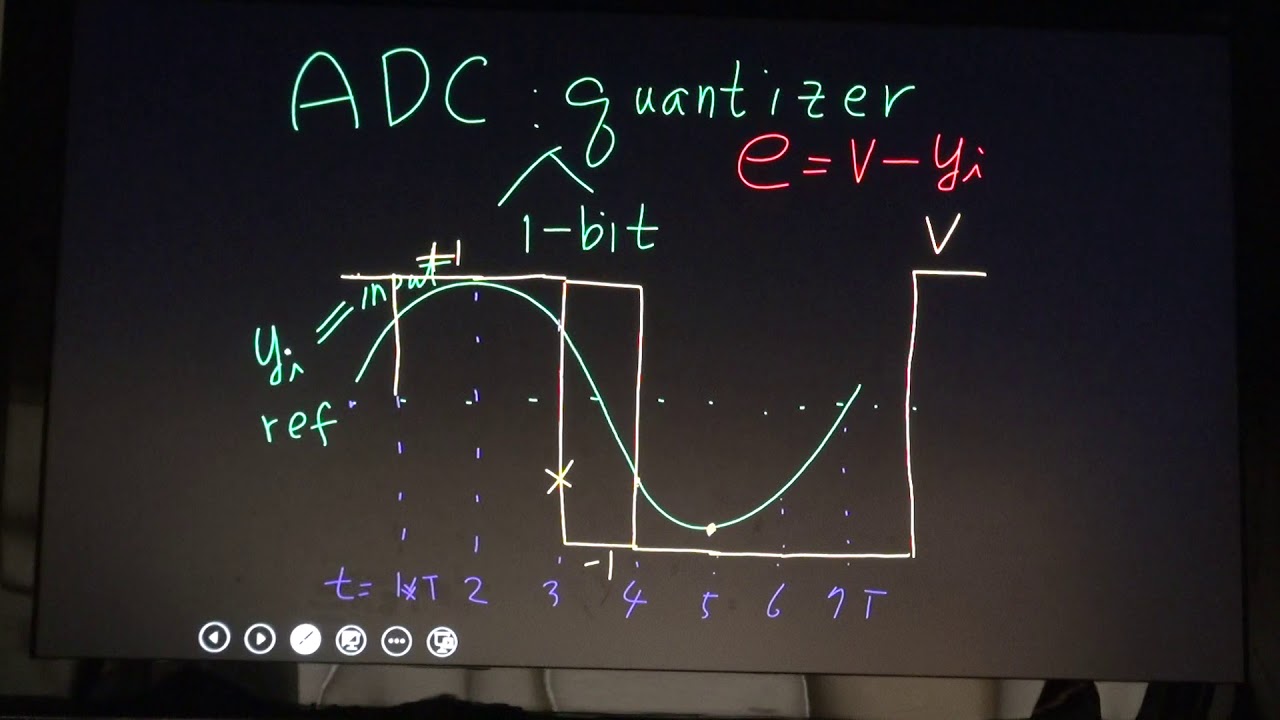 ADC : quantizer
e = V - yi
1-bit
V
+1
yi = input
ref
-1
t = 1*T 2 3 4 5 6 7 T